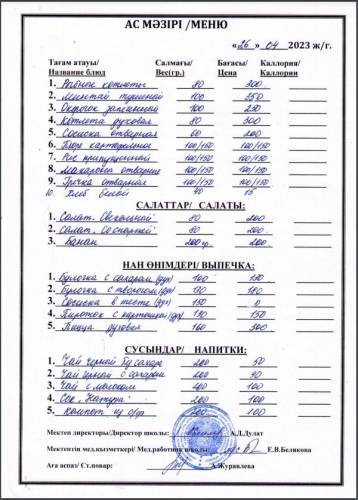 АС МӘЗІРІ /МЕНЮ
«26» 04 2023 ж/г.
Тағам атауы/ Салмағы/ Бағасы/ Каллория/
Название блюд Вес(гр.) Цена Каллории
1. Рыбные котлеты 80 300
2. Минтай тушеный 100 350
3. Окорок запеченный 100 250
4. Котлета духовая 80 300
5. Сосиска отварная 60 200
6. Пюре картофельное 100/150 100/150
7. Рис припущенный 100/150 100/150
8. Макароны отварные 100/150 100/150
9. Гречка отварная 100/150 100/150
10. Хлеб белый 40 15
САЛАТТАР/ САЛАТЫ:
1. Салат. Свекольный 80 200
2. Салат. 80 200
3. Банан 200 гр. 200
НАН ӨНІМДЕРІ/ ВЫПЕЧКА:
1. Булочка с сахаром 100
2. Булочка с творогом 180
3. Сосиска в тесте 150
4. Пирожок с картошкой 150
5. Пицца духовая 160 300
СУСЫНДАР/ НАПИТКИ:
1. Чай черный без сахара 200 50
2. Чай черный с сахаром 200
3. Чай с молоком 200 100
4. Сок. 200 100
5. компот из с/ф 200 100
Мектеп директоры/Директор школы: А.Д.Дулат
Мектептің мед.қызметкері/ Мед.работник школы: Е.В.Белякова
Аға аспаз/ Ст.повар: А.Журавлева